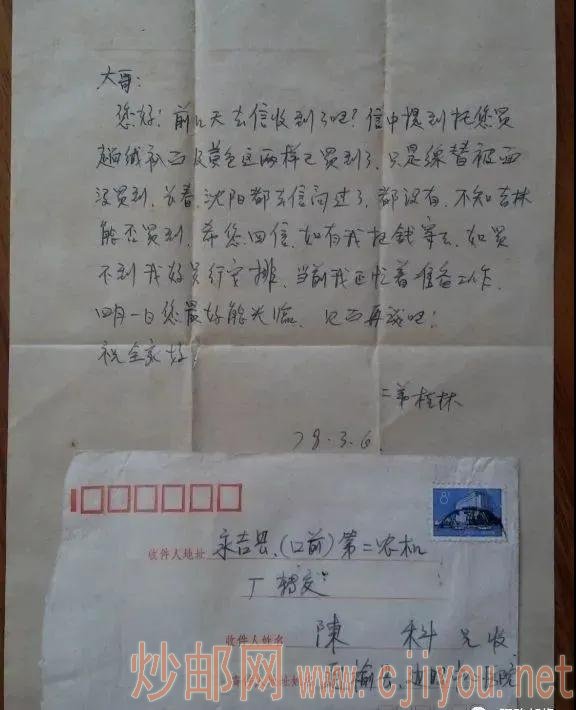 大哥：
您好！前几天去信收到了吧？信中提到托您买
面及黄色这两样已买到了，只是线替被面
没买到，长春、沈阳都去信问过了，都没有，不知吉林
能否买到，希您回信，如有我把钱寄去，如买
不到我好另行安排，当前我正忙着准备工作，
四月一日您最好能光临，见面再谈吧！
祝全家好！
二弟桂林
78.3.6.
8
收件人地址 永吉县，(口前)第二农机
厂转交
收件人姓名 陳 科 兄收
炒邮网 www.cjiyou.net